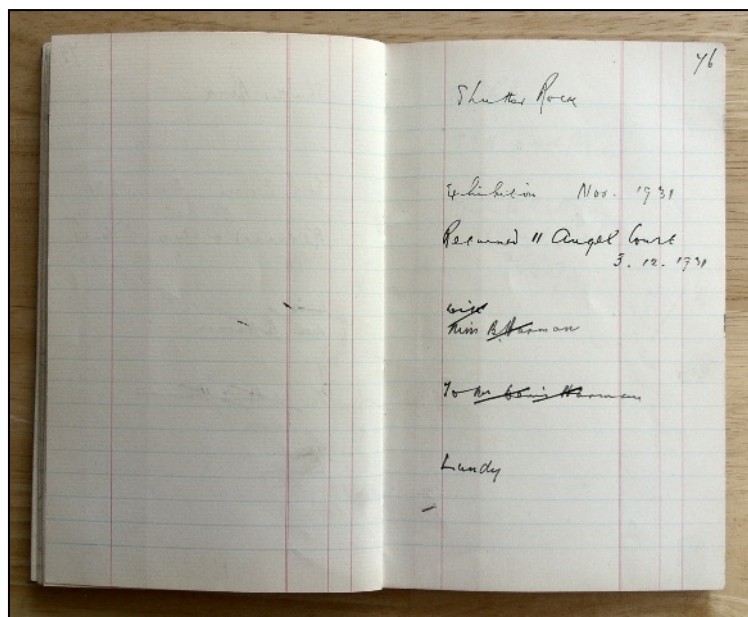 76
Shutter Rock
Exhibition Nov. 1931
Returned 11 Angel Court
3. 12. 1931
Miss B. Harman
To Mr Harman
Lundy